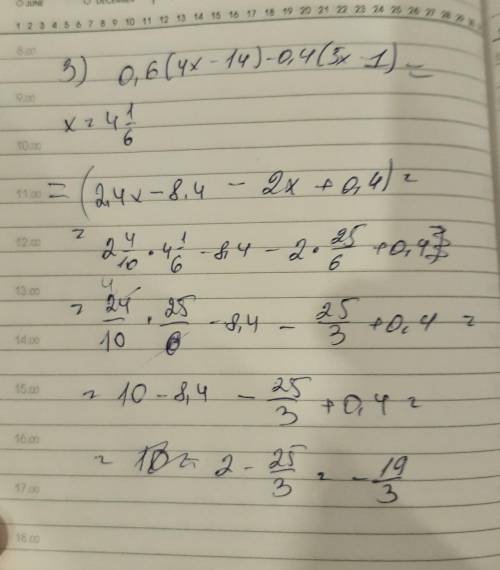 JUNE DECEMBER
1 2 3 4 5 6 7 8 9 10 11 12 13 14 15 16 17 18 19 20 21 22 23 24 25 26 27 28 29 30
8.00
3) 0,6(4x-14)-0,4(5x-1)=
9.00
x=4 1/6
10.00
11.00
=(2,4x-8,4-2x+0,4)=
12.00
= 2 4/10 · 4 1/6 - 8,4 - 2 · 25/6 + 0,4
13.00
4
= 24/10 · 25/6 - 8,4 - 25/3 + 0,4 =
14.00
15.00
= 10 - 8,4 - 25/3 + 0,4 =
16.00
= 2 - 25/3 = - 19/3
17.00
18.00